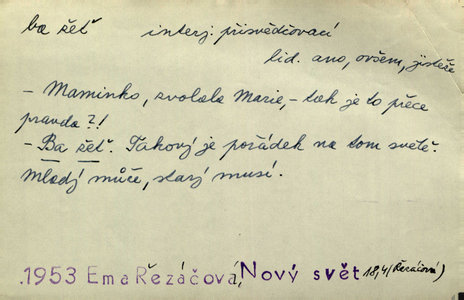 ba žeť interj. přisvědčovací
lid. ano, ovšem, jistěže
- Maminko, zvolala Marie, - tak je to přece
pravda?!
- Ba žeť. Takový je pořádek na tom světě.
Mladý může, starý musí.
.1953 Ema Řezáčová, Nový svět 18,4 (Řezáčová)